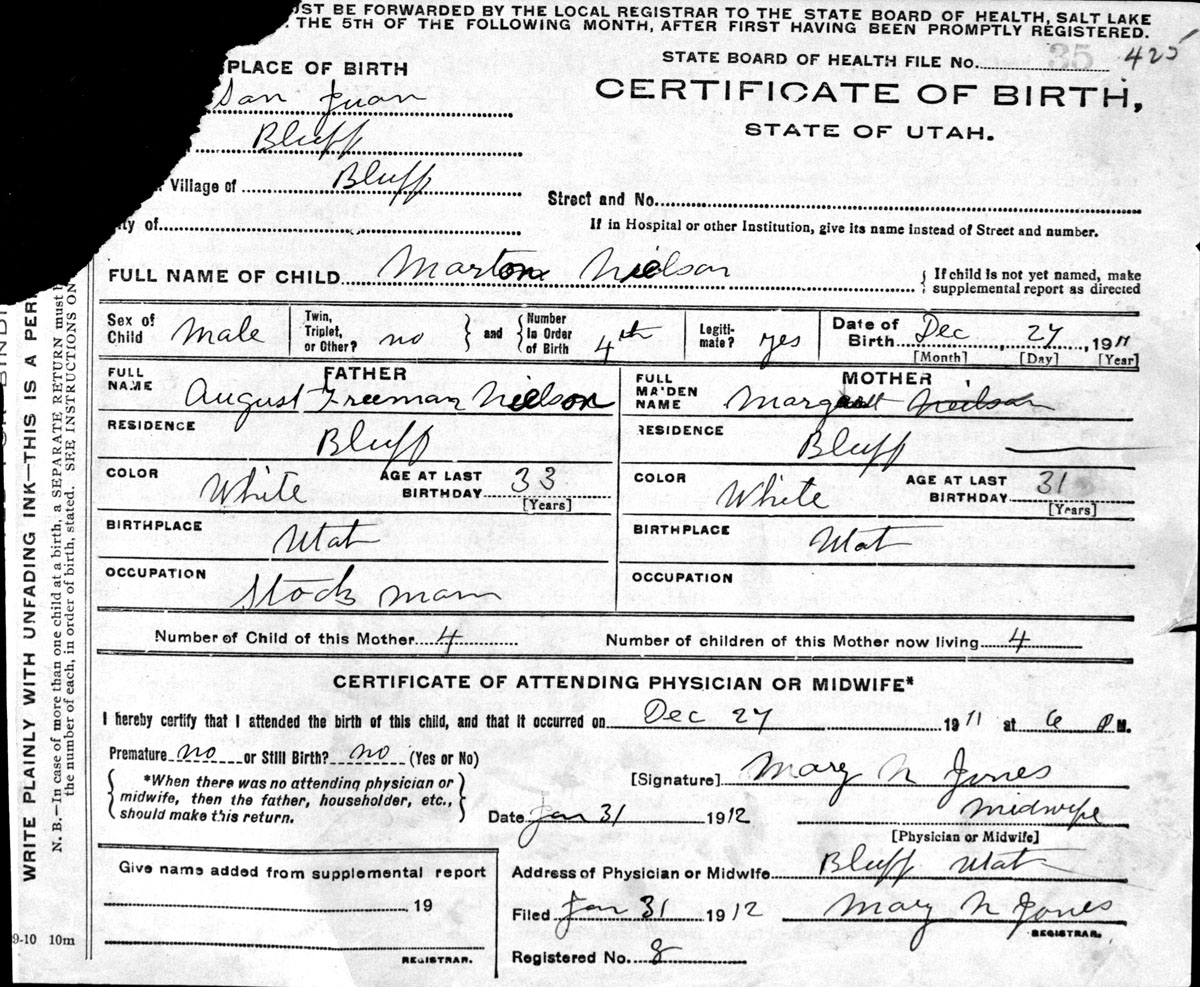 UST BE FORWARDED BY THE LOCAL REGISTRAR TO THE STATE BOARD OF HEALTH, SALT LAKE
THE 5TH OF THE FOLLOWING MONTH, AFTER FIRST HAVING BEEN PROMPTLY REGISTERED.
STATE BOARD OF HEALTH FILE No. 35 425
PLACE OF BIRTH
CERTIFICATE OF BIRTH,
STATE OF UTAH.
San Juan
Bluff
Village of Bluff
Street and No.
ity of
If in Hospital or other Institution, give its name instead of Street and number.
FULL NAME OF CHILD Marton Nielson { If child is not yet named, make
supplemental report as directed
Sex of Child Male Twin, Triplet, or Other? no } and { Number In Order of Birth 4th Legiti-mate? yes Date of Birth Dec, 27, 1911
[Month] [Day] [Year]
FATHER
FULL NAME August Freeman Nielson
RESIDENCE
Bluff
COLOR White AGE AT LAST BIRTHDAY 33
[Years]
BIRTHPLACE
Utah
OCCUPATION
Stock man
MOTHER
FULL MAIDEN NAME Margaret Neilson
RESIDENCE
Bluff
COLOR White AGE AT LAST BIRTHDAY 31
[Years]
BIRTHPLACE
Utah
OCCUPATION
Number of Child of this Mother 4 Number of children of this Mother now living 4
CERTIFICATE OF ATTENDING PHYSICIAN OR MIDWIFE*
I hereby certify that I attended the birth of this child, and that it occurred on Dec 27 1911 at 6 P M.
Premature no or Still Birth? no (Yes or No)
{ *When there was no attending physician or
midwife, then the father, householder, etc.,
should make this return. }
[Signature] Mary N Jones
Date Jan 31 1912 Midwife
[Physician or Midwife]
Address of Physician or Midwife Bluff Utah
Filed Jan 31 1912 Mary N Jones
REGISTRAR.
Registered No. 8
Give name added from supplemental report
19
REGISTRAR.
9-10 10m
WRITE PLAINLY WITH UNFADING INK—THIS IS A PER
N. B.—In case of more than one child at a birth, a SEPARATE RETURN must b
the number of each, in order of birth, stated. SEE INSTRUCTIONS ON
BINDI